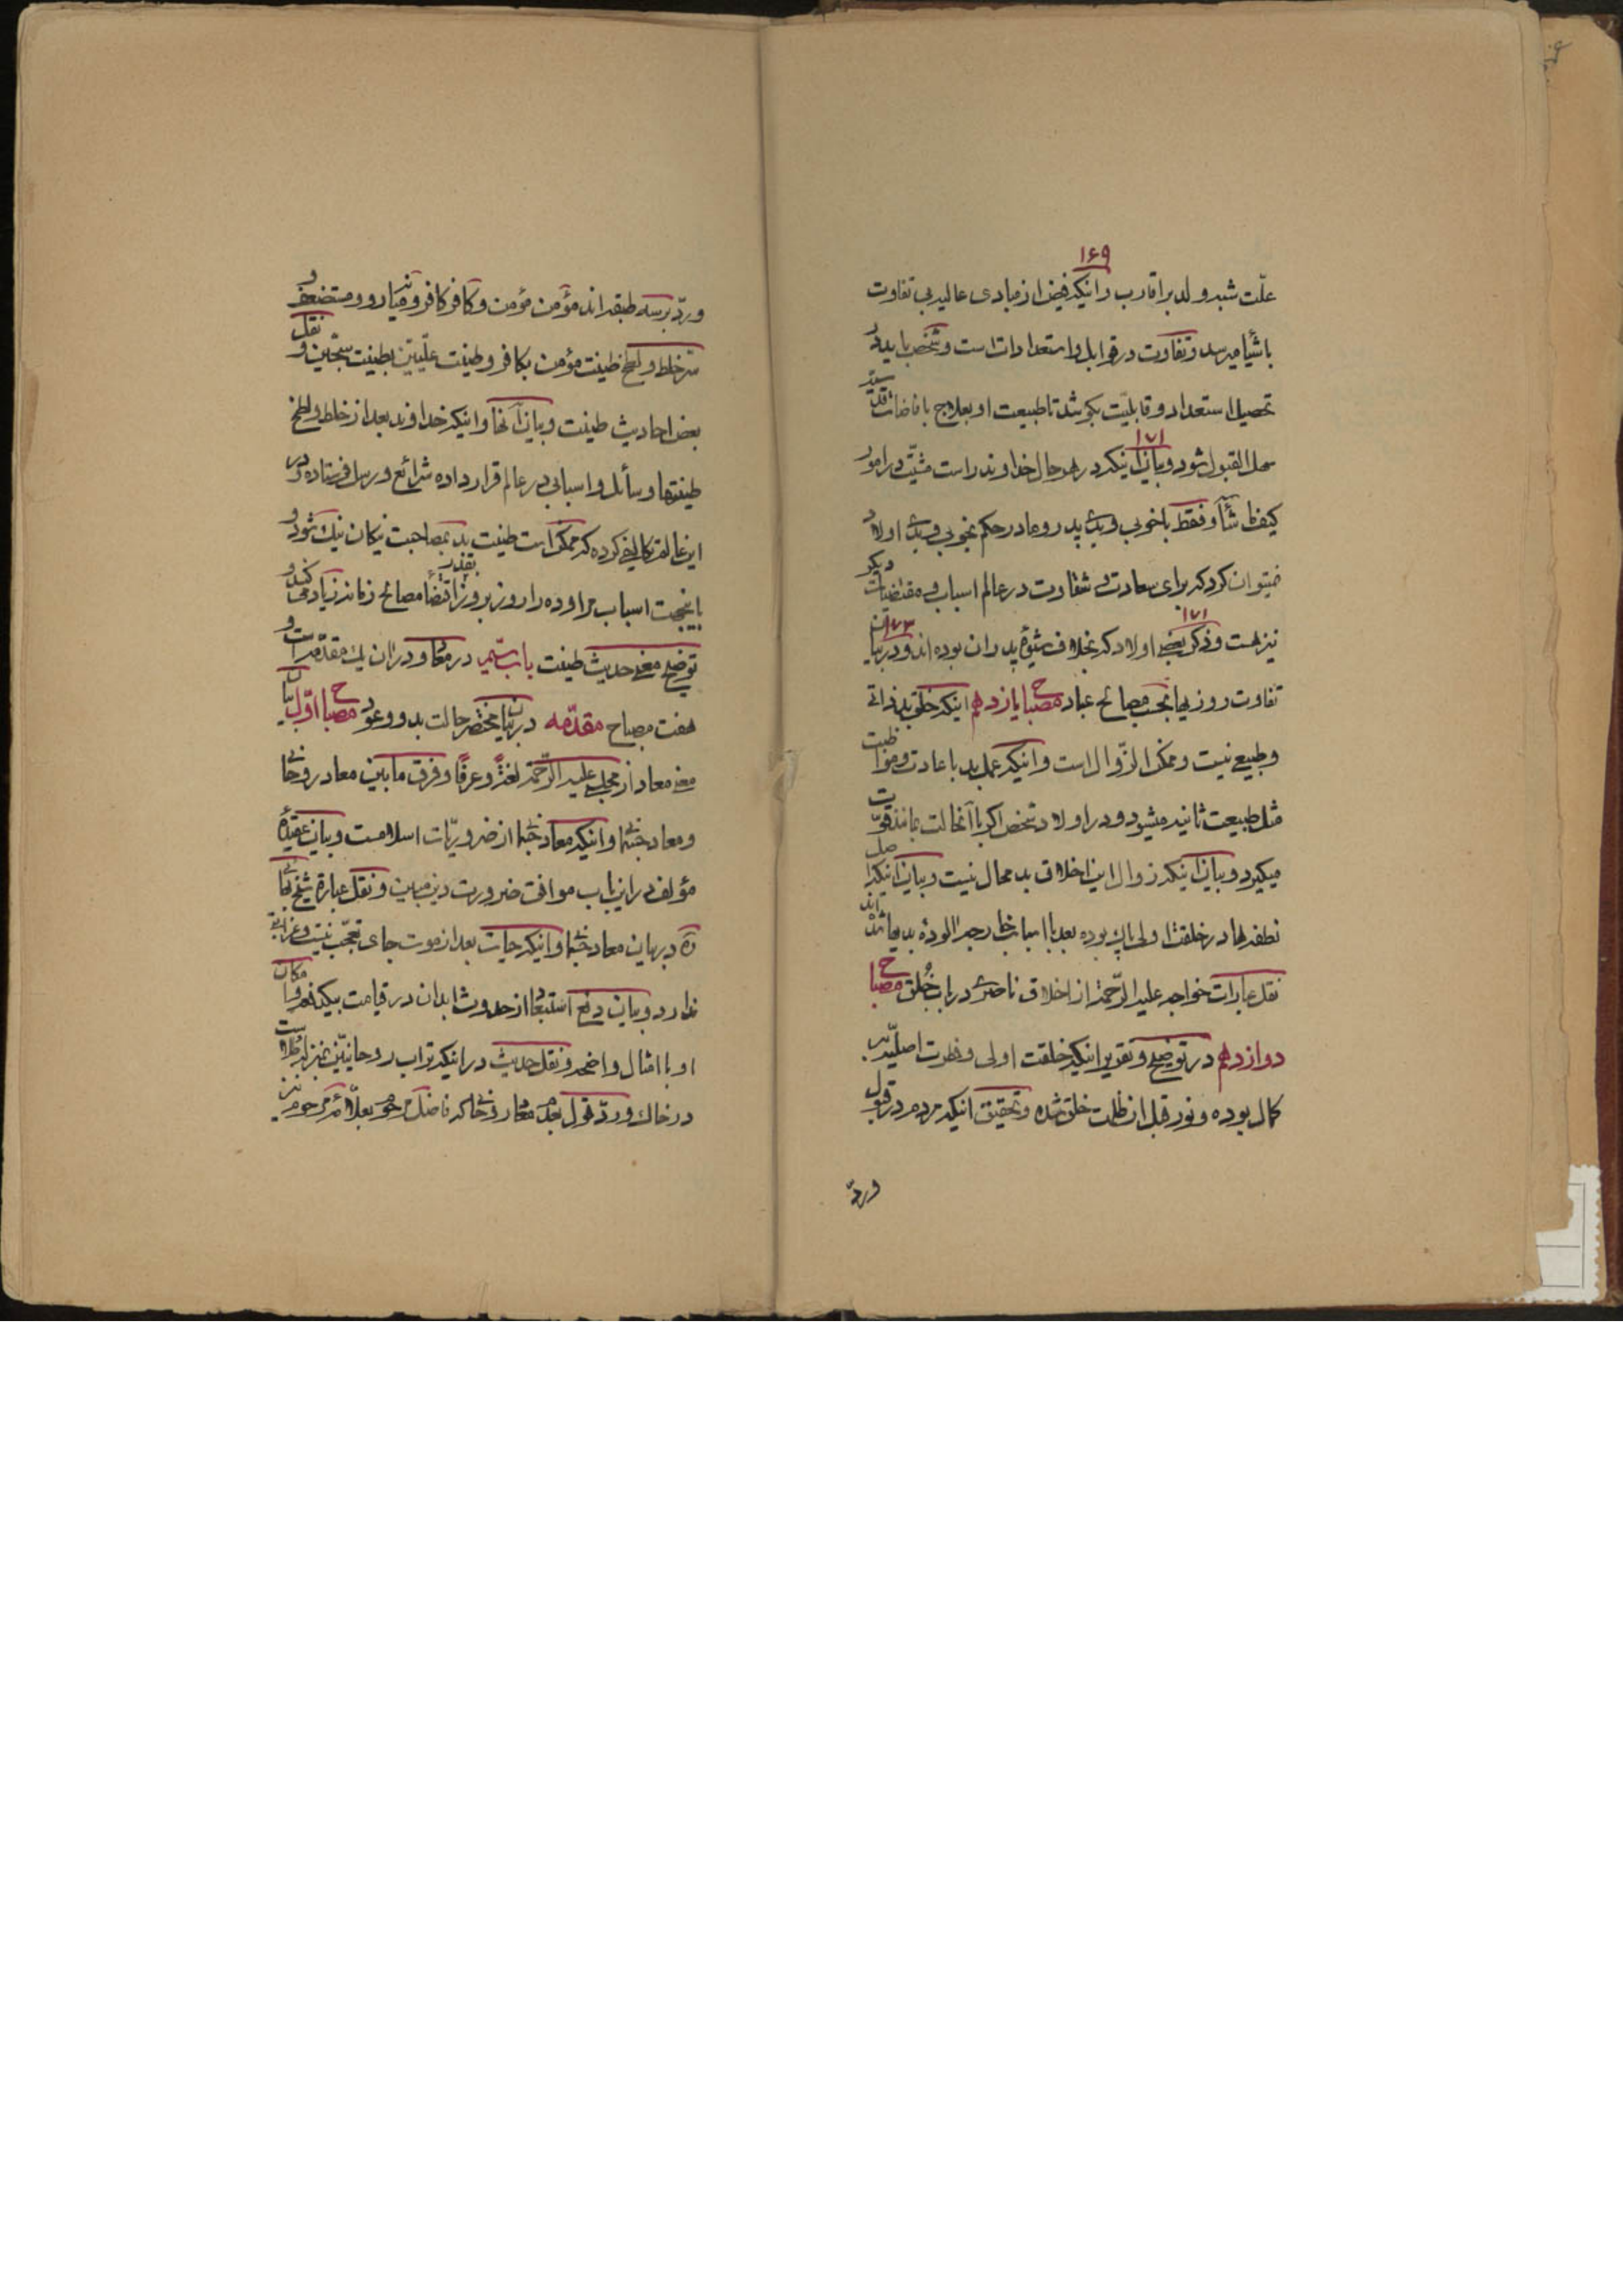 ۱۶۹
علّت شبه ولد بر اقارب و اینکه فیض از مبادی عالیه بی تفاوت
باشیا میرسد و تفاوت در قوابل و استعدادات است و شخص باید در
تحصیل استعداد و قابلیت بکوشد تا طبیعت او بعلاج با فاضات قدسیّه
سهل القبول شود و بیان اینکه در هر حال خداوند راست مشیّت در امور
۱۷۱
کیف شآء و فقط با خوبی و بدی پدر و مادر حکم بخوبی و بدی اولاد
نمیتوان کرد که برای سعادت و شقاوت در عالم اسباب و مقتضیات دیگر
۱۷۱
نیز هست و ذکر بعضی اولاد که بخلاف شیوهٔ پدران بوده اند و در بیان
۱۷۳
تفاوت روزیها بحسب مصالح عباد مصباح یازدهم اینکه خلق بد ذاتی
و طبیعی نیست و ممکن الزّوال است و اینکه عمل بد با عادت و مواظبت
مثل طبیعت ثانیه میشود و در اولاد شخص اگر با آنحالت بماند قوّت
میگیرد و بیان اینکه زوال این اخلاق بد محال نیست و بیان اینکه اصل
نطفه‌ها در خلقت اولی پاک بوده بعد با اسباب خارجه آلوده به بدیها شده اند
نقل عبارات خواجه علیه الرّحمة از اخلاق ناصری در باب خُلق مصباح
دوازدهم در توضیح و تقریر اینکه خلقت اولی و فطرت اصلیّه بر
کمال بوده و نور قبل از ظلمت خلق شده و تحقیق اینکه مردم در قبول
و ردّ
و ردّ بر سه طبقه اند مؤمن مؤمن و کافر کافر و میانه رو و مستضعف و
سرّ خلط و لطخ طینت مؤمن بکافر و طینت علّیین بطینت سجّین و نقل
بعض احادیث طینت و بیان آنها و اینکه خداوند بعد از خلط و لطخ
طینتها وسائل و اسبابی در عالم قرار داده شرائع و رسل فرستاده و در
این عالم تکالیفی کرده که ممکن است طینت بد بمصاحبت نیکان نیک شود و
باینجهت اسباب مراوده را روز بروز بقدر اقتضاء مصالح زمانه زیاد می کند و
توضیح معنی حدیث طینت باب سیّم در معاد و در آن یک مقدّمه است و
هفت مصباح مقدّمه در بیان مختصر حالت بدو و عود مصباح اوّل بیان
معنی معاد از مجلسی علیه الرّحمة لغةً و عرفًا و فرق مابین معاد روحانی
و معاد جسمانی و اینکه معاد جسمانی از ضروریّات اسلامست و بیان عقیدهٔ
مؤلف در این باب موافق ضرورت دین مبین و نقل عبارة شیخ بهائی
ره در بیان معاد جسمانی و اینکه حیات بعد از موت جای تعجّب نیست و غرابتی
ندارد و بیان دفع استبعاد از حدوث ابدان در قیامت بیکدفعه و امکان
او با امثال واضحه و نقل حدیث در اینکه تراب روحانیّین بمنزله طلا است
در خاک و ردّ قول بعض معاد روحانی که فاضل مرحوم بعلاّمهٔ مرحوم نیز